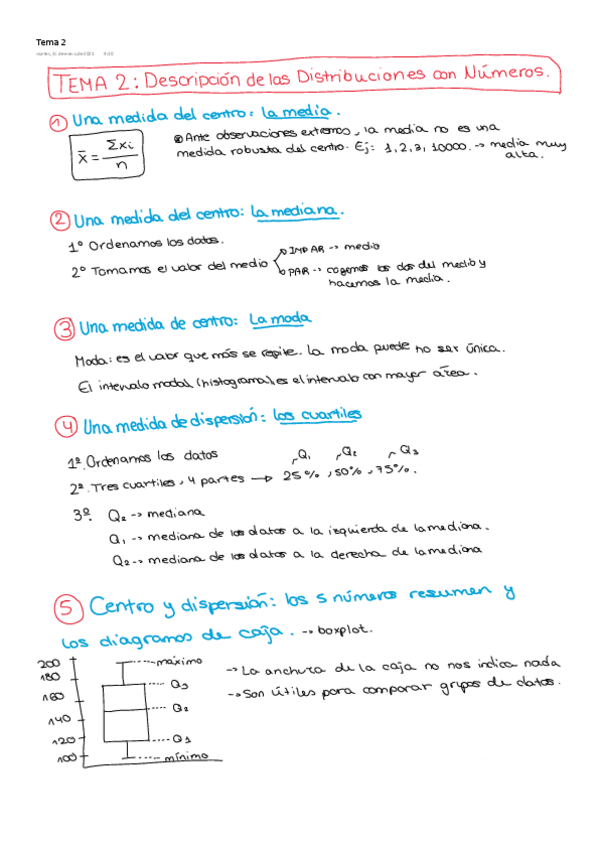 Tema 2
TEMA 2: Descripción de las Distribuciones con Números.
① Una medida del centro: la media.
x̄ = Σxi / n
Ante observaciones extremos, la media no es una
medida robusta del centro. Ej: 1, 2, 3, 10000. → media muy
alta.
② Una medida del centro: la mediana.
1º Ordenamos los datos.
2º Tomamos el valor del medio
IMPAR → medio
PAR → cogemos los dos del medio y
hacemos la media.
③ Una medida de centro: La moda
Moda: es el valor que más se repite. La moda puede no ser única.
El intervalo modal (histograma) es el intervalo con mayor área.
④ Una medida de dispersión: los cuartiles
1º. Ordenamos los datos
Q1 Q2 Q3
2º. Tres cuartiles, 4 partes → 25%, 50%, 75%.
3º. Q2 → mediana
Q1 → mediana de los datos a la izquierda de la mediana.
Q2 → mediana de los datos a la derecha de la mediana
⑤ Centro y dispersión: los 5 números resumen y
los diagramas de caja. → boxplot.
200
180
160
140
120
100
máximo
Q3
Q2
Q1
mínimo
→ La anchura de la caja no nos indica nada
→ Son útiles para comparar grupos de datos.